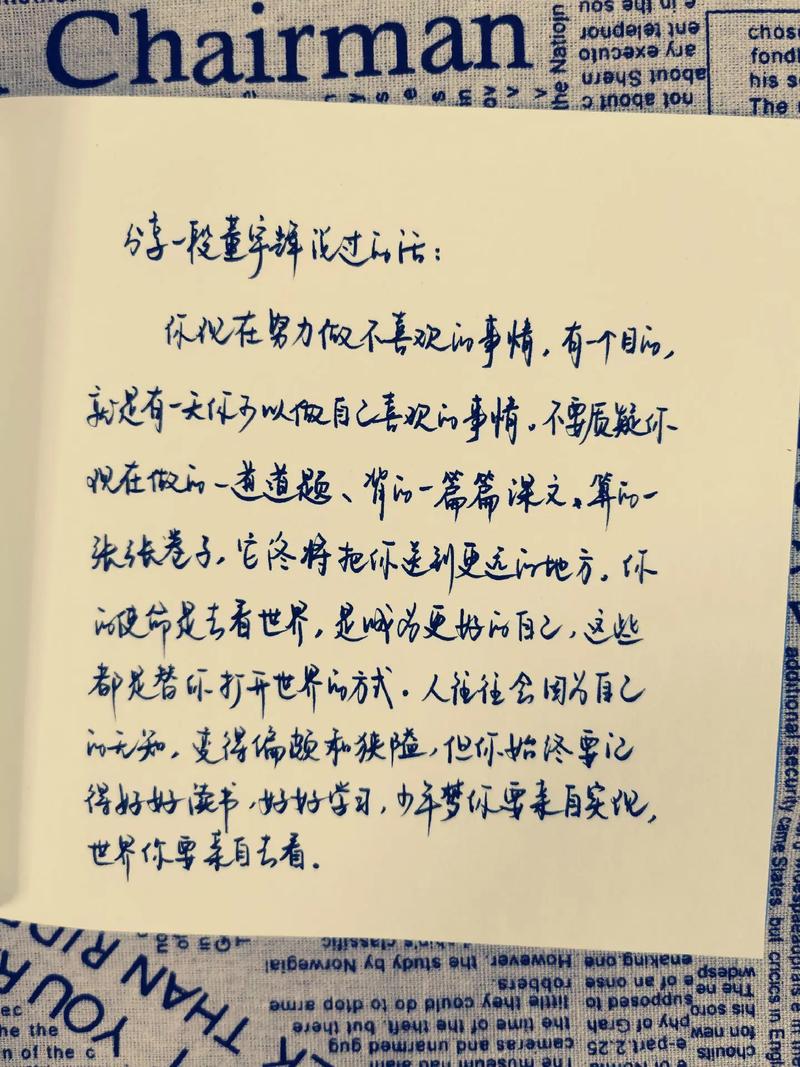 Chairman
the Nation
分享一段董宇辉说过的话：
你现在努力做不喜欢的事情，有一个目的，
就是有一天你可以做自己喜欢的事情。不要质疑你
现在做的一道道题、背的一篇篇课文、算的一
张张卷子，它终将把你送到更远的地方。你
的使命是去看世界，是成为更好的自己，这些
都是替你打开世界的方式。人往往会因为自己
的无知，变得偏颇和狭隘，但你始终要记
得好好读书，好好学习，少年梦你要亲自实现，
世界你要亲自去看。
chose
fondl
his s
The
e in the sou
ent telephor
ary executo
about Shern
not about c
additional security came States, but critics in Engl
YOUR
THAN RID
However, the study by Norwegian
enaking.one
e of an onse
robbers.
little they could do to dtop arme
supposed to
the time of the theft, but there
phy of Grah
cameras and unarmed gug
e-part 2.25
The museum had alarm
The ne
his soro
ton new